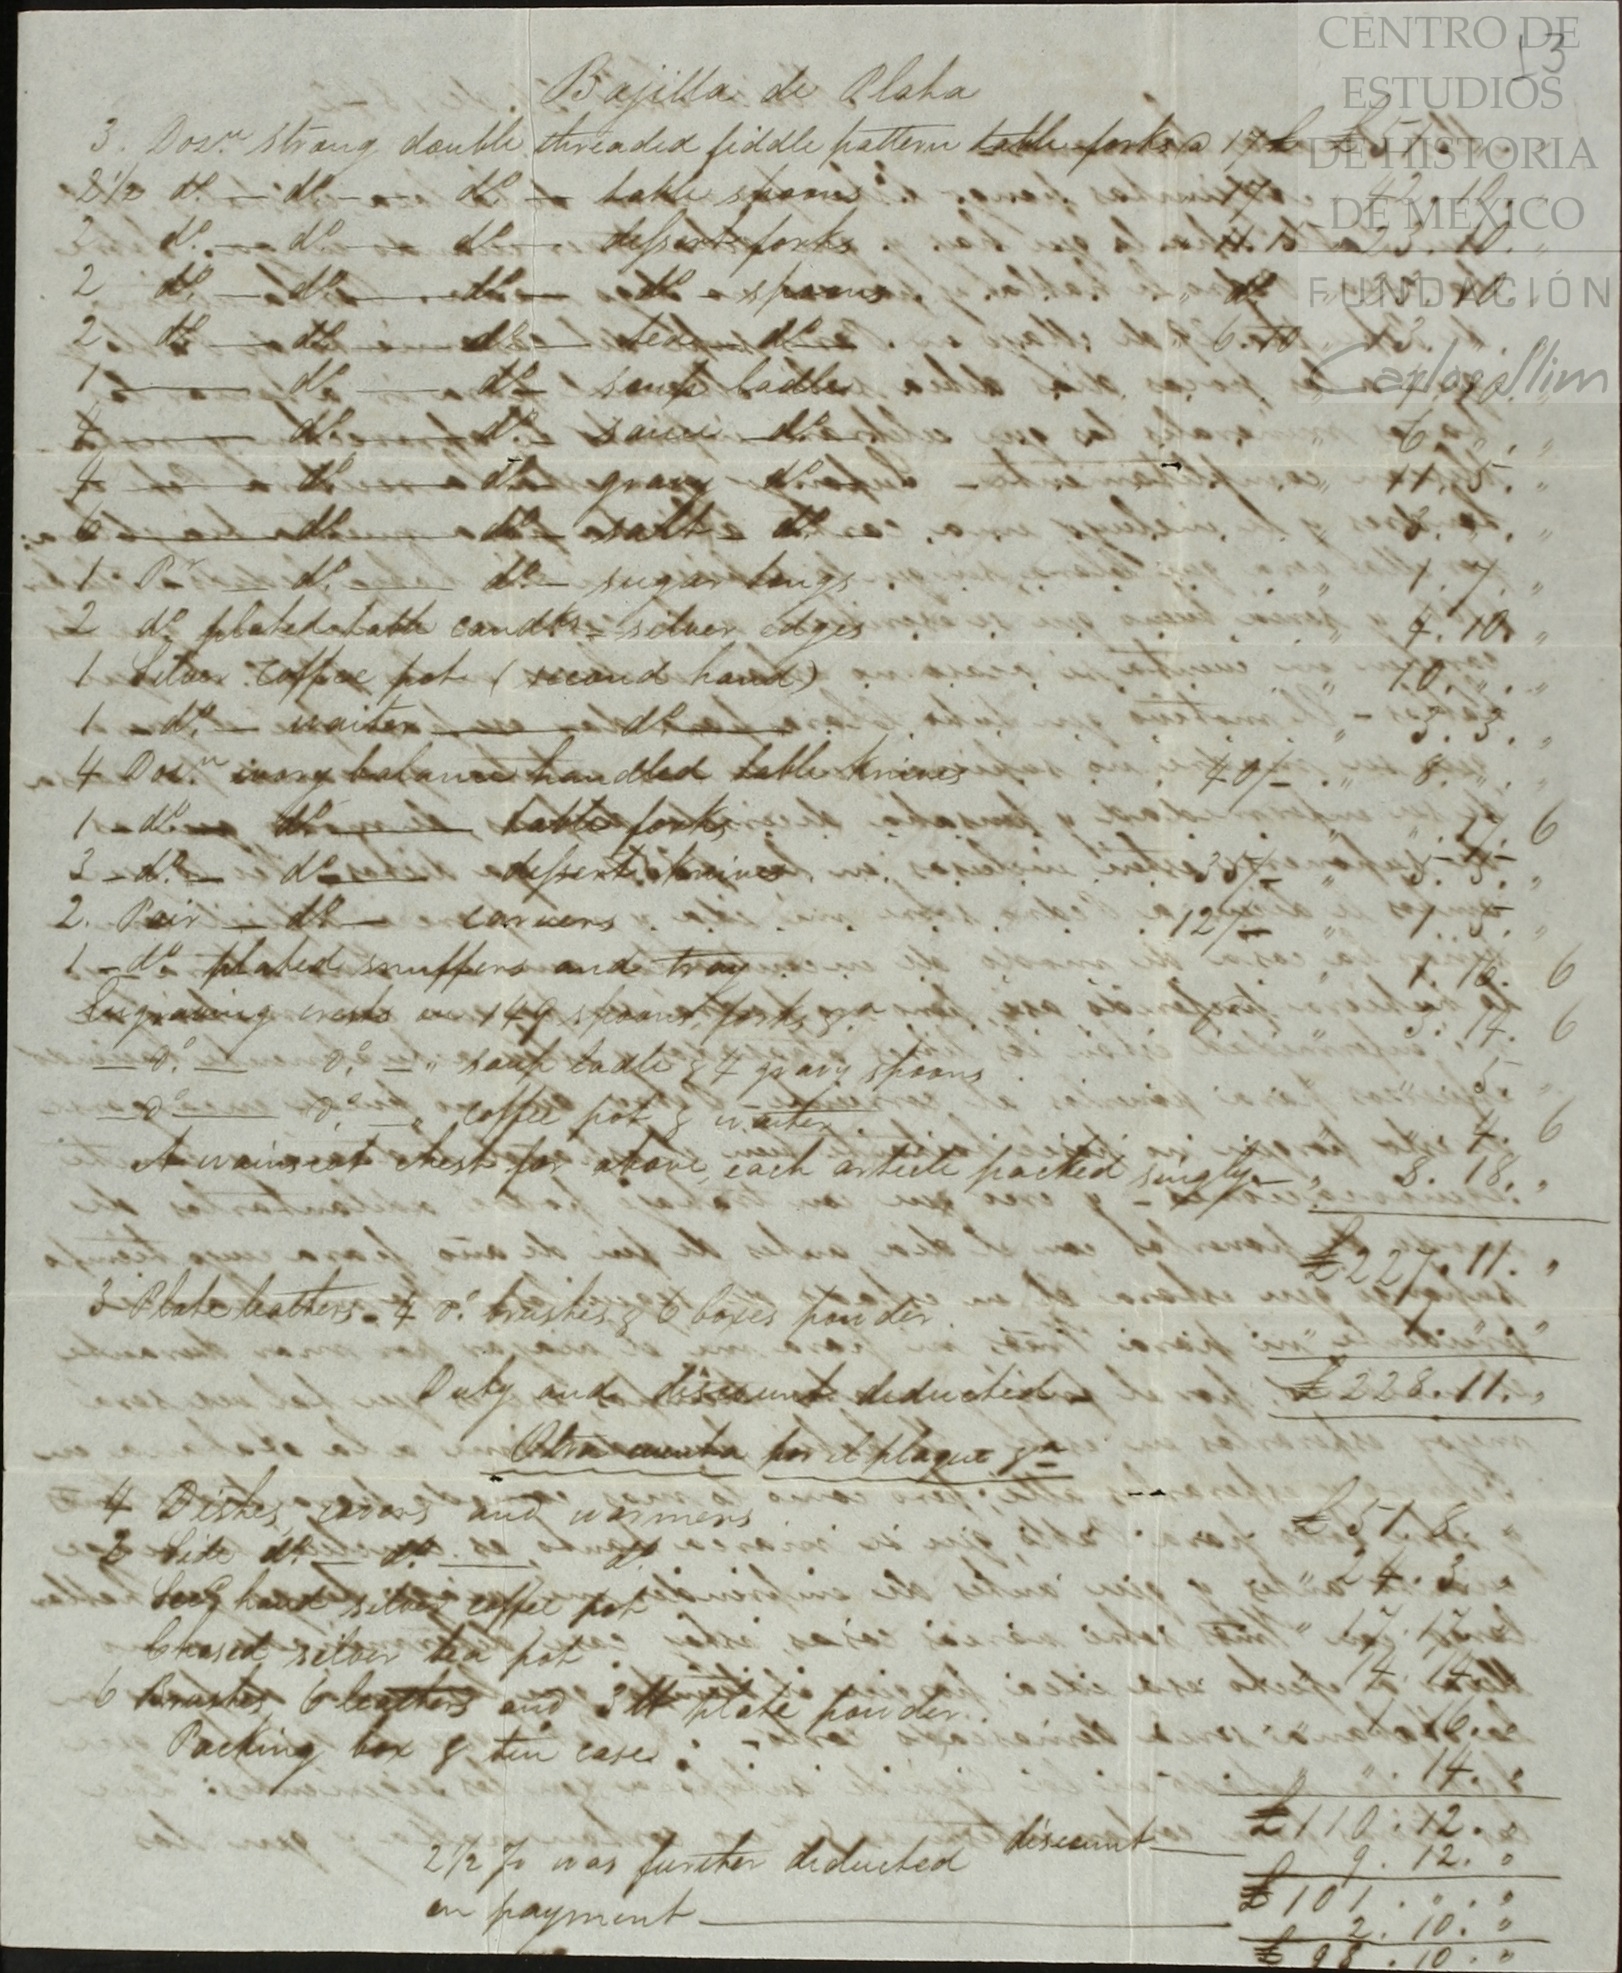 CENTRO DE
ESTUDIOS
DE HISTORIA
DE MÉXICO
FUNDACIÓN
Carlos Slim
13
Bajilla de Plata
3. Dozn. strong double threaded fiddle pattern table forks a 17 £ £ 51
2 1/2 do. — do. — do. — table spoons 17 42. 10. "
2 do. — do. — do. — dessert forks 11. 15 23. 10. "
2 do. — do. — do. — do. — spoons " do. 23. 10. "
2 do. — do. — do. — tea — do. 6. 10 13. "
1 — do. — do. — soup ladle
4 — do. — do. — sauce — do. 6. " "
4 — do. — do. — gravy do. 11. 5. "
6 — do. — do. — salt — do.
1 Pr. — do. — do. — sugar tongs 1. 7. "
2 do. plated table candks. — silver edges 4. 10. "
1 Silver coffee pot (second hand) 10. " "
1 — do. — waiter — do. 3. 3. "
4 Dozn. ivory balance handled table knives 40/- 8. " "
1 — do. — do. — table forks 17. 6
3 — do. — do. — dessert knives 35/- 5. 5. "
2. Pair — do. — carvers 12/- 1. 5. "
1 — do. plated snuffers and tray 1. 16. 6
Engraving crests on 149 spoons, forks &a 3. 14. 6
— Do. — Do. — " soup ladle & 4 gravy spoons 5
— Do. — Do. — " coffee pot & waiter. 4. 6
A wainscot chest for above, each article packed singly — " 8. 18. "
£ 227. 11. "
3 Plate leathers — 4 Do. brushes & 6 boxes powder 1. " "
£ 228. 11. "
Duty and discount deducted —
Otra cuenta por el plaque &a
4 Dishes, covers and warmers £ 51. 8
2 Side do. — do. — do. 24. 3
Secd. hand silver coffee pot 17. 17
Chased silver tea pot 14. 14
6 Brushes, 6 leathers and 3 lb plate powder. 1. 16. "
Packing box & tin case: — " 14. "
£ 110. 12. "
discount — 9. 12. "
£ 101. " "
2 1/2 % was further deducted
on payment — 2. 10. "
£ 98. 10. "